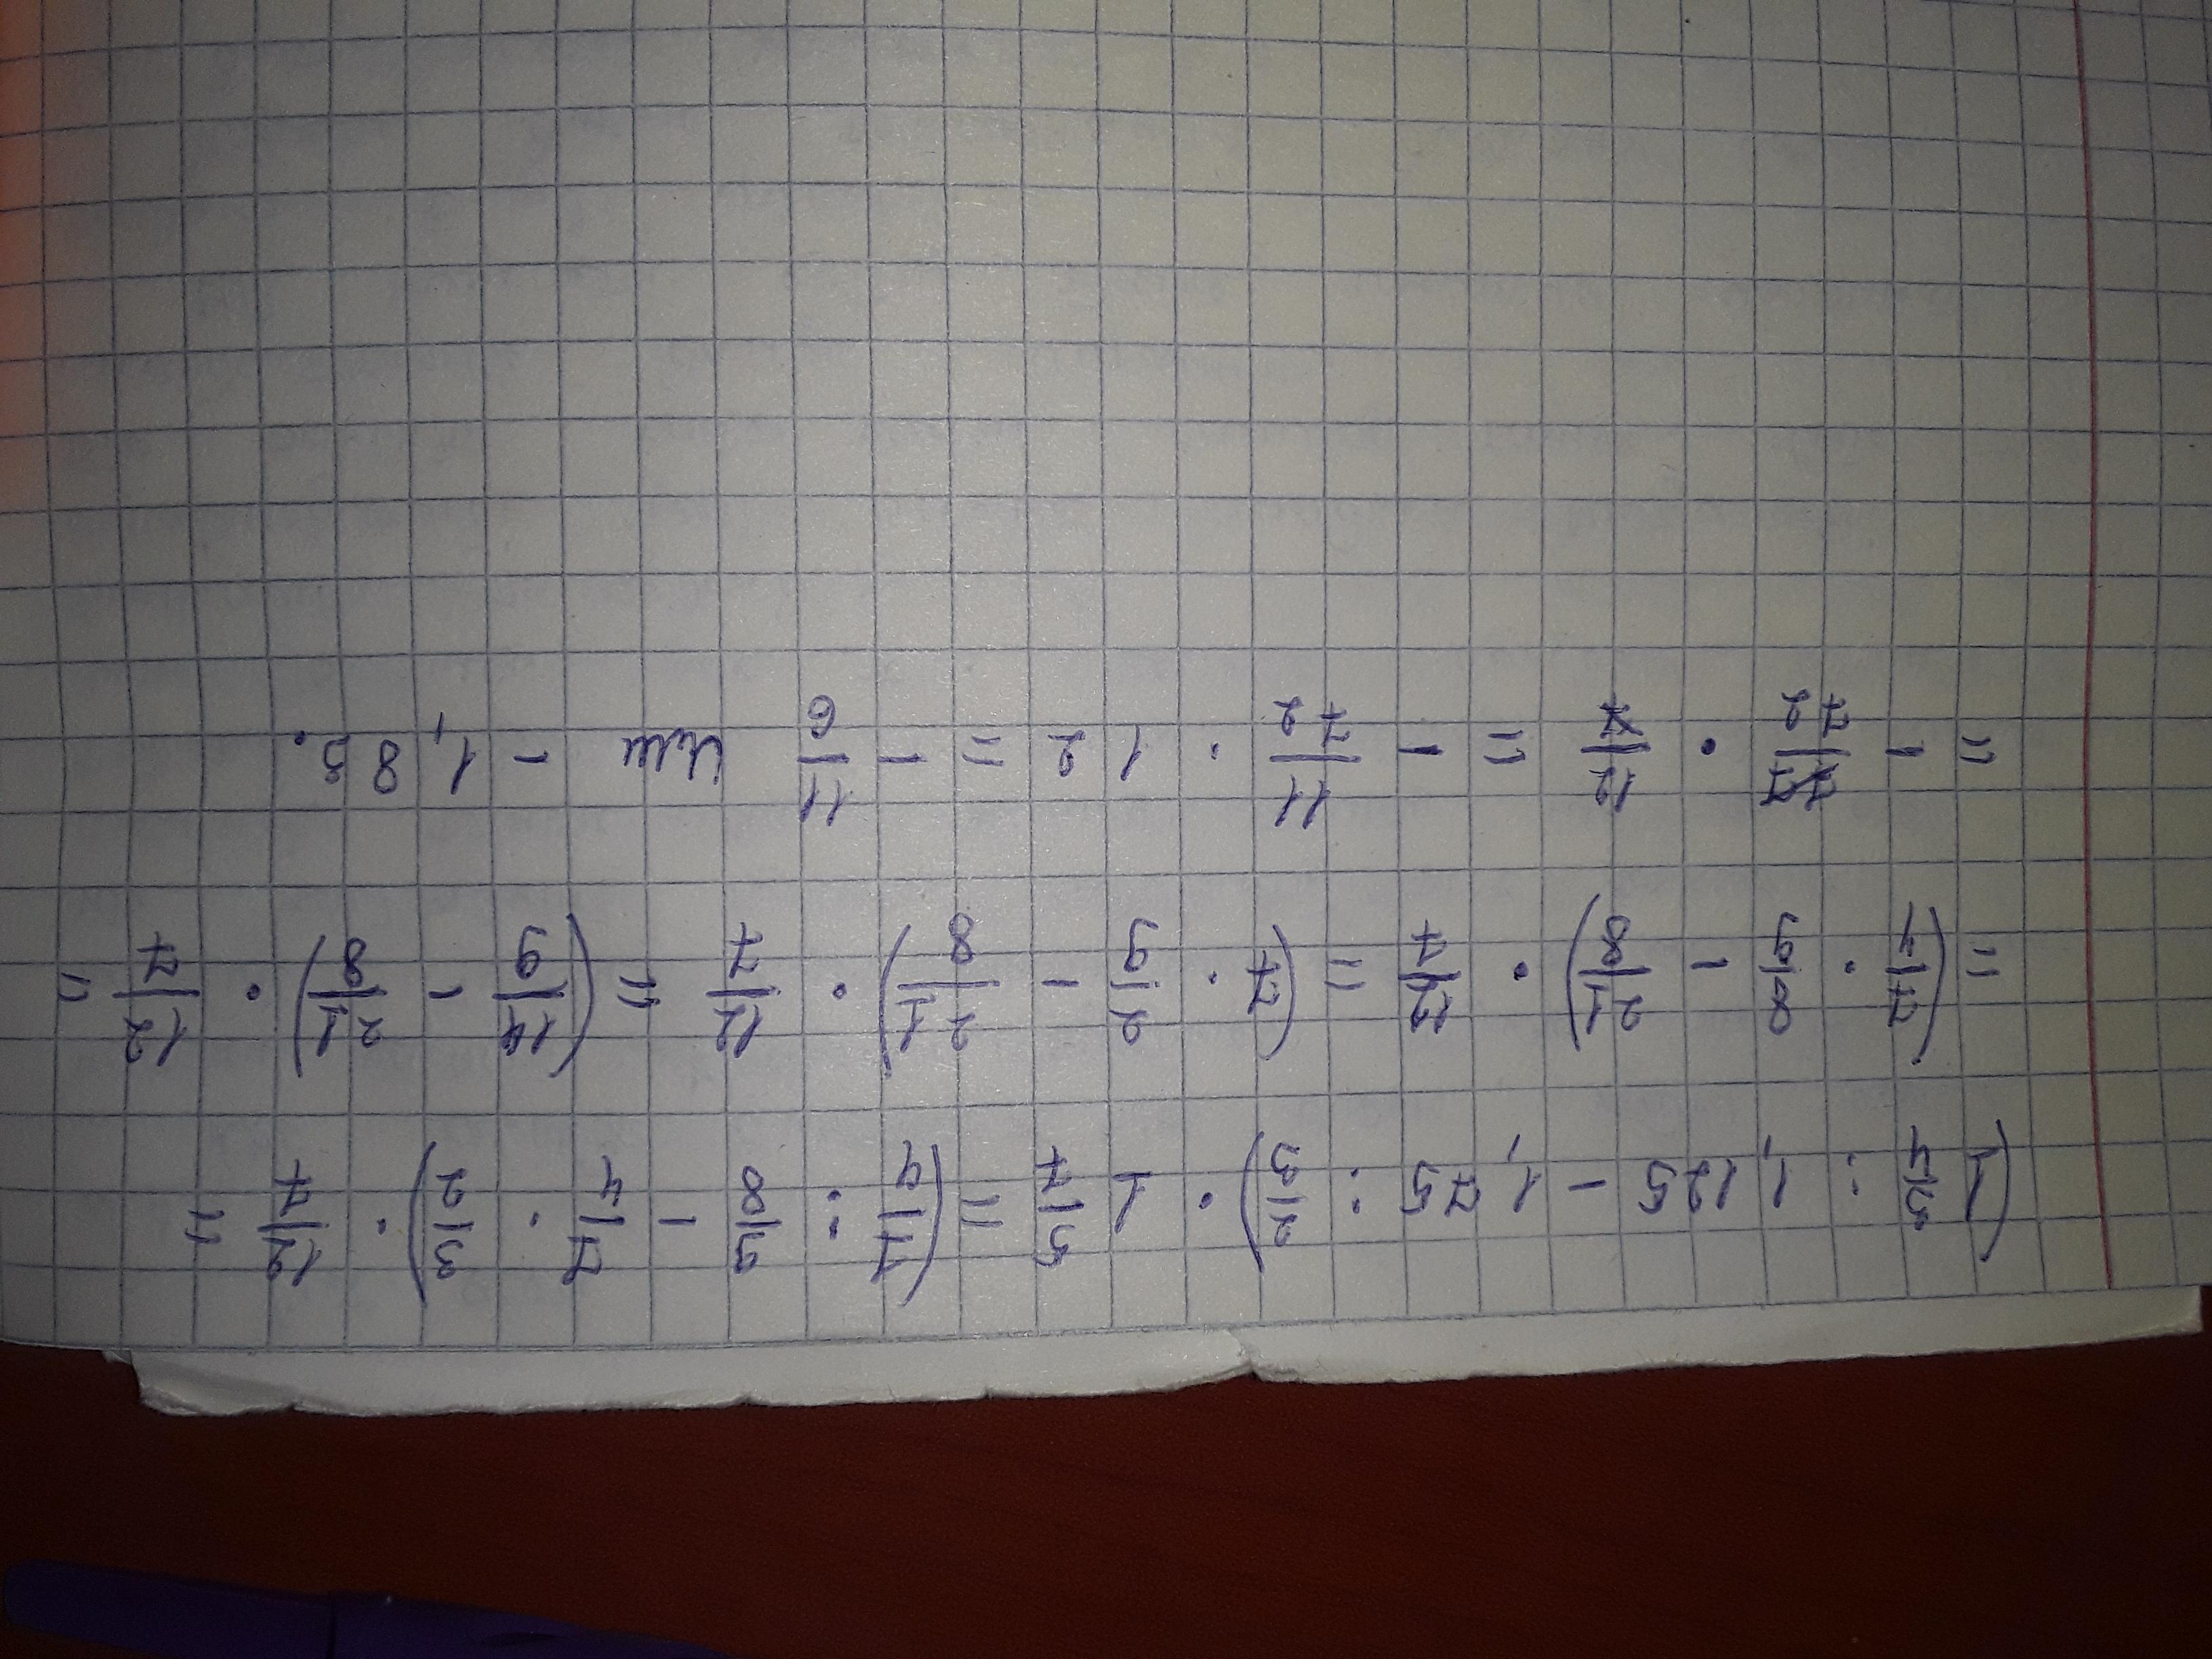 (1 3/4 : 1,125 - 1,75 : 2/3) · 1 5/7 = (7/4 : 9/8 - 7/4 · 3/2) · 12/7 =
= (7/4 · 8/9 - 21/8) · 12/7 = (7 · 2/9 - 21/8) · 12/7 = (14/9 - 21/8) · 12/7 =
= - 77/72 · 12/7 = - 11/72 · 12 = - 11/6 или - 1,83.